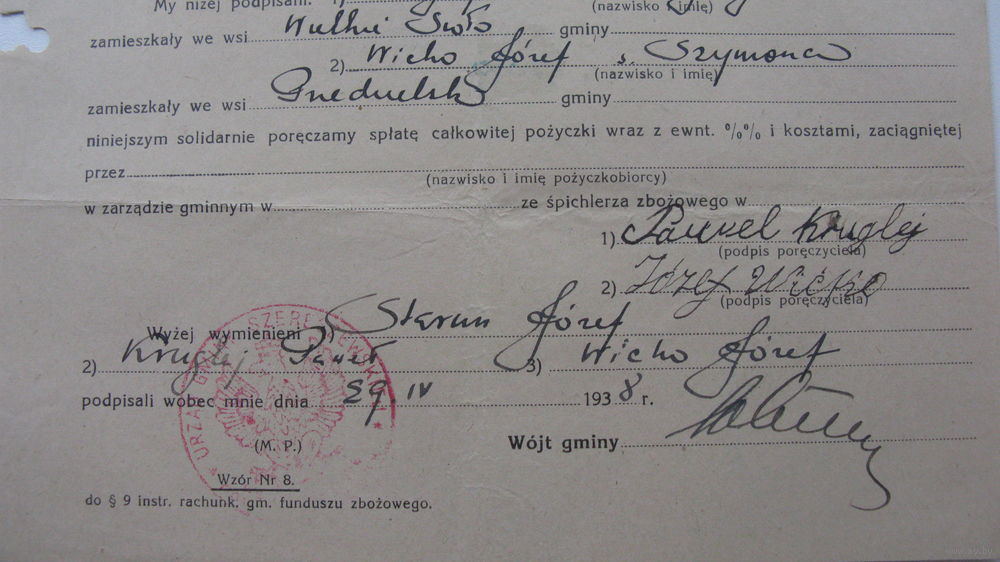 My niżej podpisani: 1)
(nazwisko i imię)
zamieszkały we wsi Wielkie Sioło gminy
2) Wicho Józef s. Szymona
(nazwisko i imię)
zamieszkały we wsi gminy
niniejszym solidarnie poręczamy spłatę całkowitej pożyczki wraz z ewnt. %% i kosztami, zaciągniętej
przez
(nazwisko i imię pożyczkobiorcy)
w zarządzie gminnym w ze śpichlerza zbożowego w
1) Paweł Kruglej
(podpis poręczyciela)
2) Józef Wicho
(podpis poręczyciela)
Wyżej wymienieni 1) Józef
2) Kruglej Paweł 3) Wicho Józef
podpisali wobec mnie dnia 29 IV 1938 r.
URZĄD GMINY
(M. P.)
Wójt gminy
Wzór Nr 8.
do § 9 instr. rachunk. gm. funduszu zbożowego.